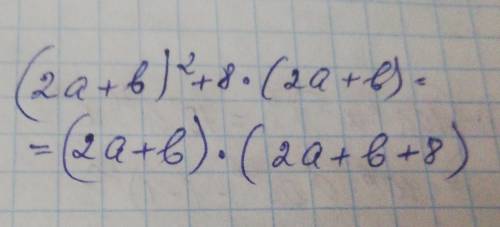 (2a+b)²+8·(2a+b)=
=(2a+b)·(2a+b+8)